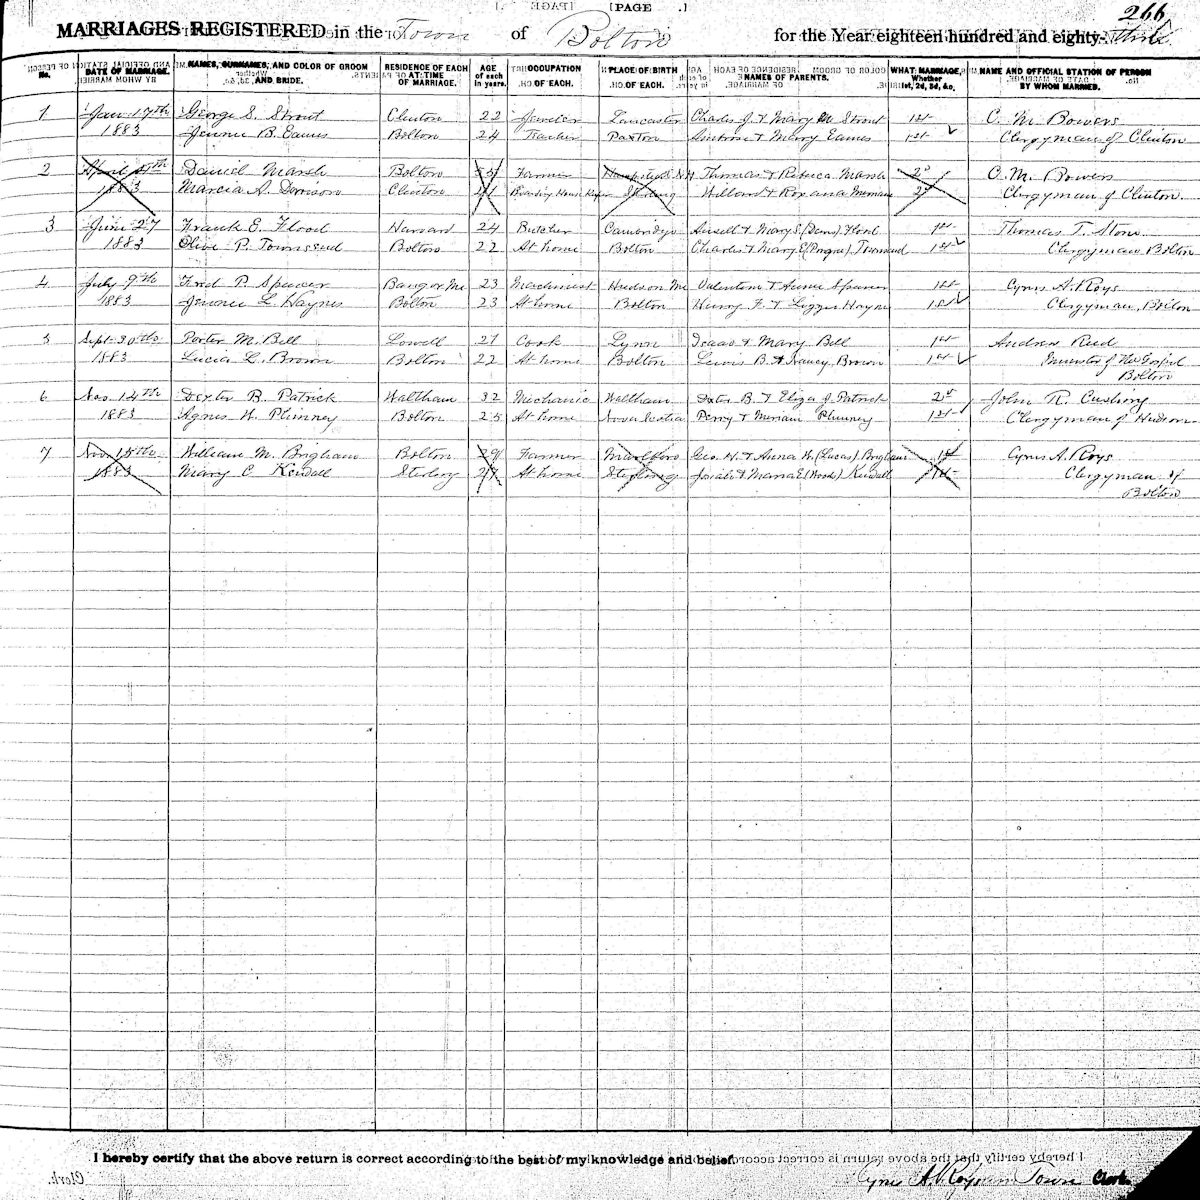 [PAGE .]
266
MARRIAGES REGISTERED in the Town of Bolton for the Year eighteen hundred and eighty-three
No. DATE OF MARRIAGE. NAMES, SURNAMES, AND COLOR OF GROOM AND BRIDE. RESIDENCE OF EACH AT TIME OF MARRIAGE. AGE of each in years. OCCUPATION OF EACH. PLACE OF BIRTH OF EACH. NAMES OF PARENTS. WHAT MARRIAGE, Whether 1st, 2d, 3d, &c. NAME AND OFFICIAL STATION OF PERSON BY WHOM MARRIED.
1 Jan 17th George S. Strout Clinton 22 Lancaster Charles J. & Mary M Strout 1st C. M. Bowers
1883 Jennie B. Eames Bolton 24 Teacher Paxton Ambrose & Mary Eames 1st Clergyman of Clinton
2 April 4th Daniel Marsh Bolton Farmer Hampstead N.H Thomas & Rebeca Marsh 2d C. M. Bowers
1883 Marcia A. Clinton Boarding House Keeper Sterling Willard & Roxana 2d Clergyman of Clinton
3 June 27 Frank E. Flood Harvard 24 Butcher Cambridge Ansell & Mary S. Flood 1st Thomas T. Stone
1883 Olive P. Townsend Bolton 22 At home Bolton Charles & Mary E Townsend 1st Clergyman Bolton
4 July 9th Fred P. Spencer Bangor Me 23 Machinist Hudson Me Valentine & Annie Spencer 1st Cyrus A. Roys
1883 Jennie L. Haynes Bolton 23 At home Bolton Henry F. & Lizzie Haynes 1st Clergyman, Bolton
5 Sept. 30th Porter M. Bell Lowell 27 Cook Lynn Isaac & Mary Bell 1st Andrew Reed
1883 Lucia L. Brown Bolton 22 At home Bolton Lewis B. & Nancy Brown 1st Minister of the Gospel
Bolton
6 Nov. 14th Dexter B. Patrick Waltham 32 Mechanic Waltham Dexter B. & Eliza J. Patrick 2d John R. Cushing
1883 Agnes W. Phinney Bolton 25 At home Nova Scotia Perry & Miriam Phinney 1st Clergyman of Hudson
7 Nov. 15th William M. Brigham Bolton 29 Farmer Marlboro Geo. W. & Anna W. (Lucas) Brigham 1st Cyrus A. Roys
1883 Mary C Kendall Sterling 27 At home Sterling Josiah & Maria E (Woods) Kendall 1st Clergyman of
Bolton
I hereby certify that the above return is correct according to the best of my knowledge and belief.
Cyrus A. Roys Town Clerk